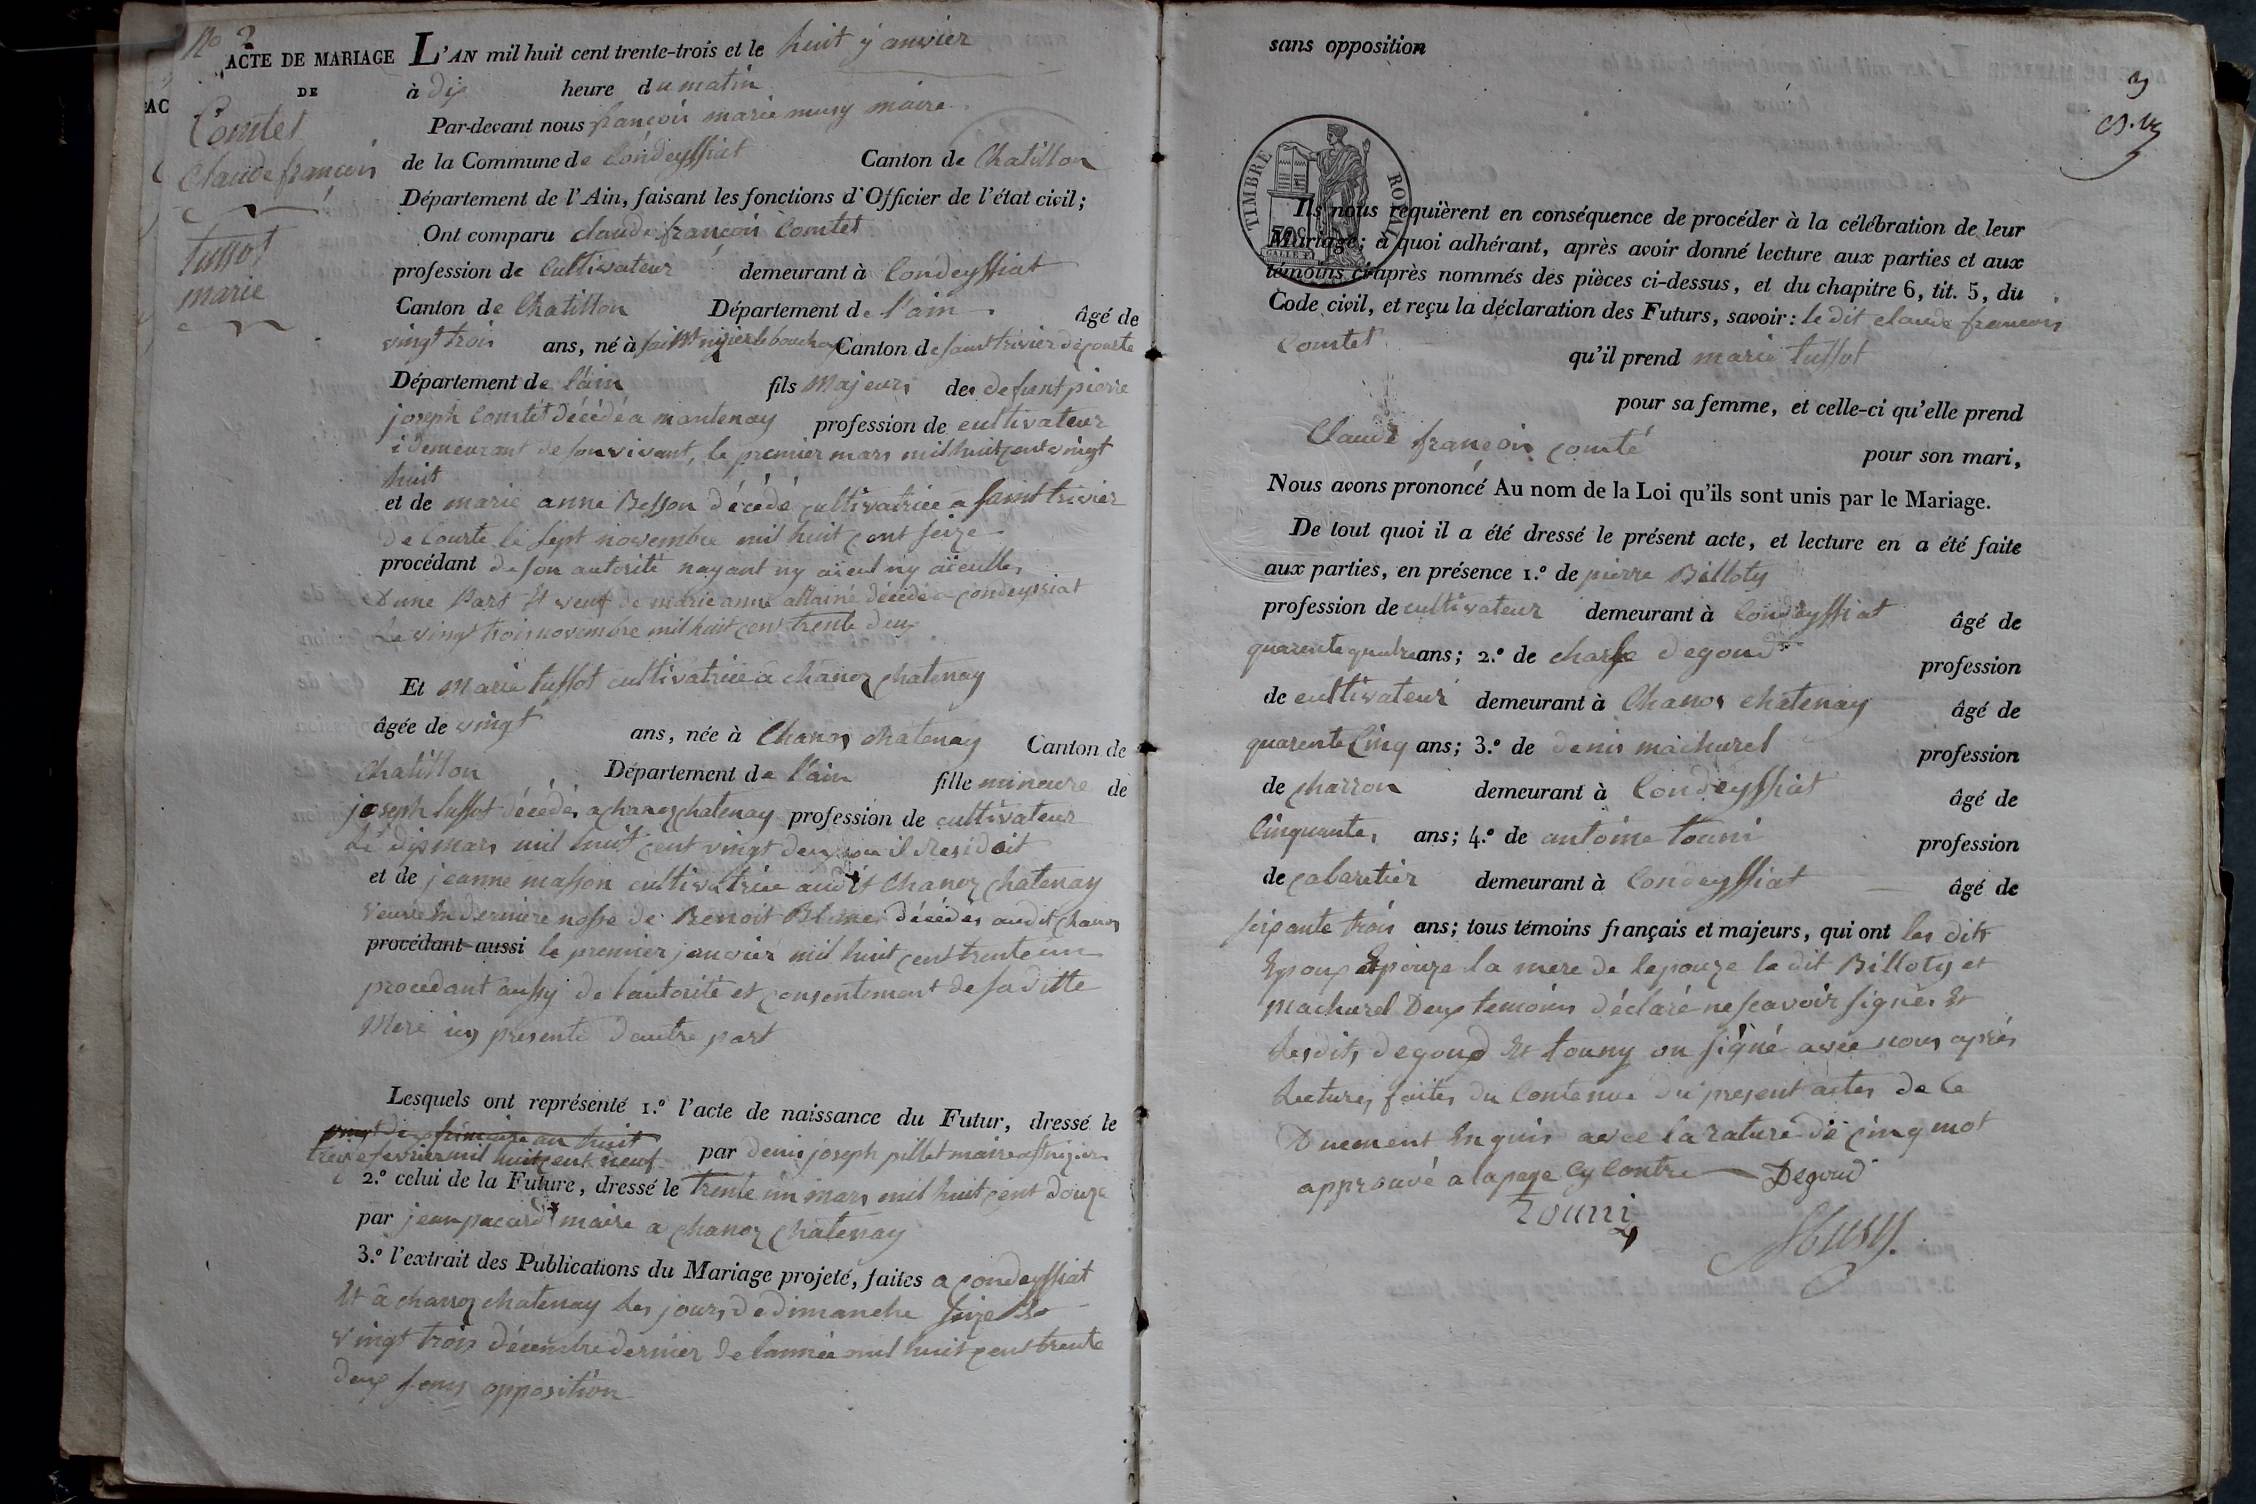 No 2
ACTE DE MARIAGE
DE
Comtet
Claude françois
tussot
marie
L'AN mil huit cent trente-trois et le huit janvier
à dix heure du matin
Par-devant nous françois marie musy maire
de la Commune de Condeyssiat Canton de Chatillon
Département de l'Ain, faisant les fonctions d'Officier de l'état civil;
Ont comparu claude françois Comtet
profession de Cultivateur demeurant à Condeyssiat
Canton de Chatillon Département de l'ain âgé de
vingt trois ans, né à saint nizier le bouchoux Canton de saint trivier de courte
Département de l'ain fils Majeur des defunt pierre
joseph Comtet décédé a mantenay profession de cultivateur
i demeurant de son vivant, le premier mars mil huit cent vingt
huit
et de marie anne Besson décédé cultivatrice a saint trivier
de Courte le sept novembre mil huit cent seize
procédant de son autorité nayant ny aïeul ny aïeulles
D'une Part Et veuf de marie anne allainé décédé a condeyssiat
Le vingt trois novembre mil huit cent trente deux
Et Marie tussot cultivatrice a chanoz chatenay
âgée de vingt ans, née à Chanoz chatenay Canton de
Chatillon Département de l'ain fille mineure de
joseph tussot décédés a chanoz chatenay profession de cultivateur
Le dix mars mil huit cent vingt deux ou il residoit
et de jeanne masson cultivatrice audit Chanoz chatenay
veuve En derniere nosse de Benoit décédés audit chanoz
procédant aussi le premier janvier mil huit cent trente un
procedant aussy de lautorité et consentement de sa ditte
Mere icy presente d'autre part
Lesquels ont représenté 1.º l'acte de naissance du Futur, dressé le
vingt deux frimaire an huit
treize fevrier mil huit cent neuf par denis joseph pillet maire a st nizier
2.º celui de la Future, dressé le trente un mars mil huit cent douze
par jean pacard maire a chanoz chatenay
3.º l'extrait des Publications du Mariage projeté, faites a condeyssiat
Et a chanoz chatenay les jours de dimanche seize Et
vingt trois décembre dernier de lannée mil huit cent trente
deux sens opposition
sans opposition
3
TIMBRE ROYAL
Ils nous requièrent en conséquence de procéder à la célébration de leur
Mariage; à quoi adhérant, après avoir donné lecture aux parties et aux
témoins ci-après nommés des pièces ci-dessus, et du chapitre 6, tit. 5, du
Code civil, et reçu la déclaration des Futurs, savoir: le dit claude francois
Comtet qu'il prend marie tussot
pour sa femme, et celle-ci qu'elle prend
Claude françois comté pour son mari,
Nous avons prononcé Au nom de la Loi qu'ils sont unis par le Mariage.
De tout quoi il a été dressé le présent acte, et lecture en a été faite
aux parties, en présence 1.º de pierre Billoty
profession de cultivateur demeurant à Condeyssiat âgé de
quarente quatre ans; 2.º de charle degoud profession
de cultivateur demeurant à Chanos chatenay âgé de
quarente Cinq ans; 3.º de denis machurel profession
de charron demeurant à Condeyssiat âgé de
Cinquante, ans; 4.º de antoine touni profession
de cabaretier demeurant à Condeyssiat âgé de
soixante trois ans; tous témoins français et majeurs, qui ont les dits
Epoux Epouze la mere de lepouze le dit Billoty et
machurel Deux temoins déclaré ne scavoir signés Et
Lesdits degoud Et touny on signé avec nous après
Lectures faites du Contenue du present actes de Ce
Duement Enquis avec la rature de cinq mot
approuvé a la page cy Contre Degoud
touni
Musy.